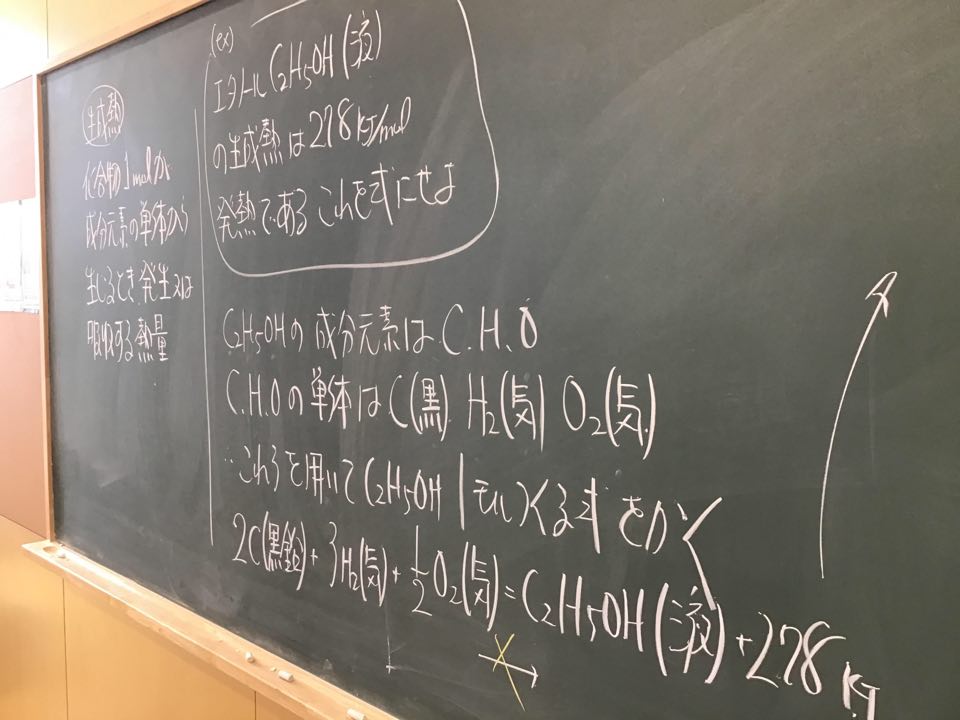 生成熱
化合物1molが
成分元素の単体から
生じるとき発生又は
吸収する熱量
(ex)
エタノール C₂H₅OH(液)
の生成熱は278KJ/mol
発熱である これを式にせよ
C₂H₅OHの成分元素はC.H.O
C.H.Oの単体はC(黒) H₂(気) O₂(気)
∴これらを用いてC₂H₅OH 1モルつくる式をかく
2C(黒鉛)+3H₂(気)+1/2O₂(気)=C₂H₅OH(液)+278KJ